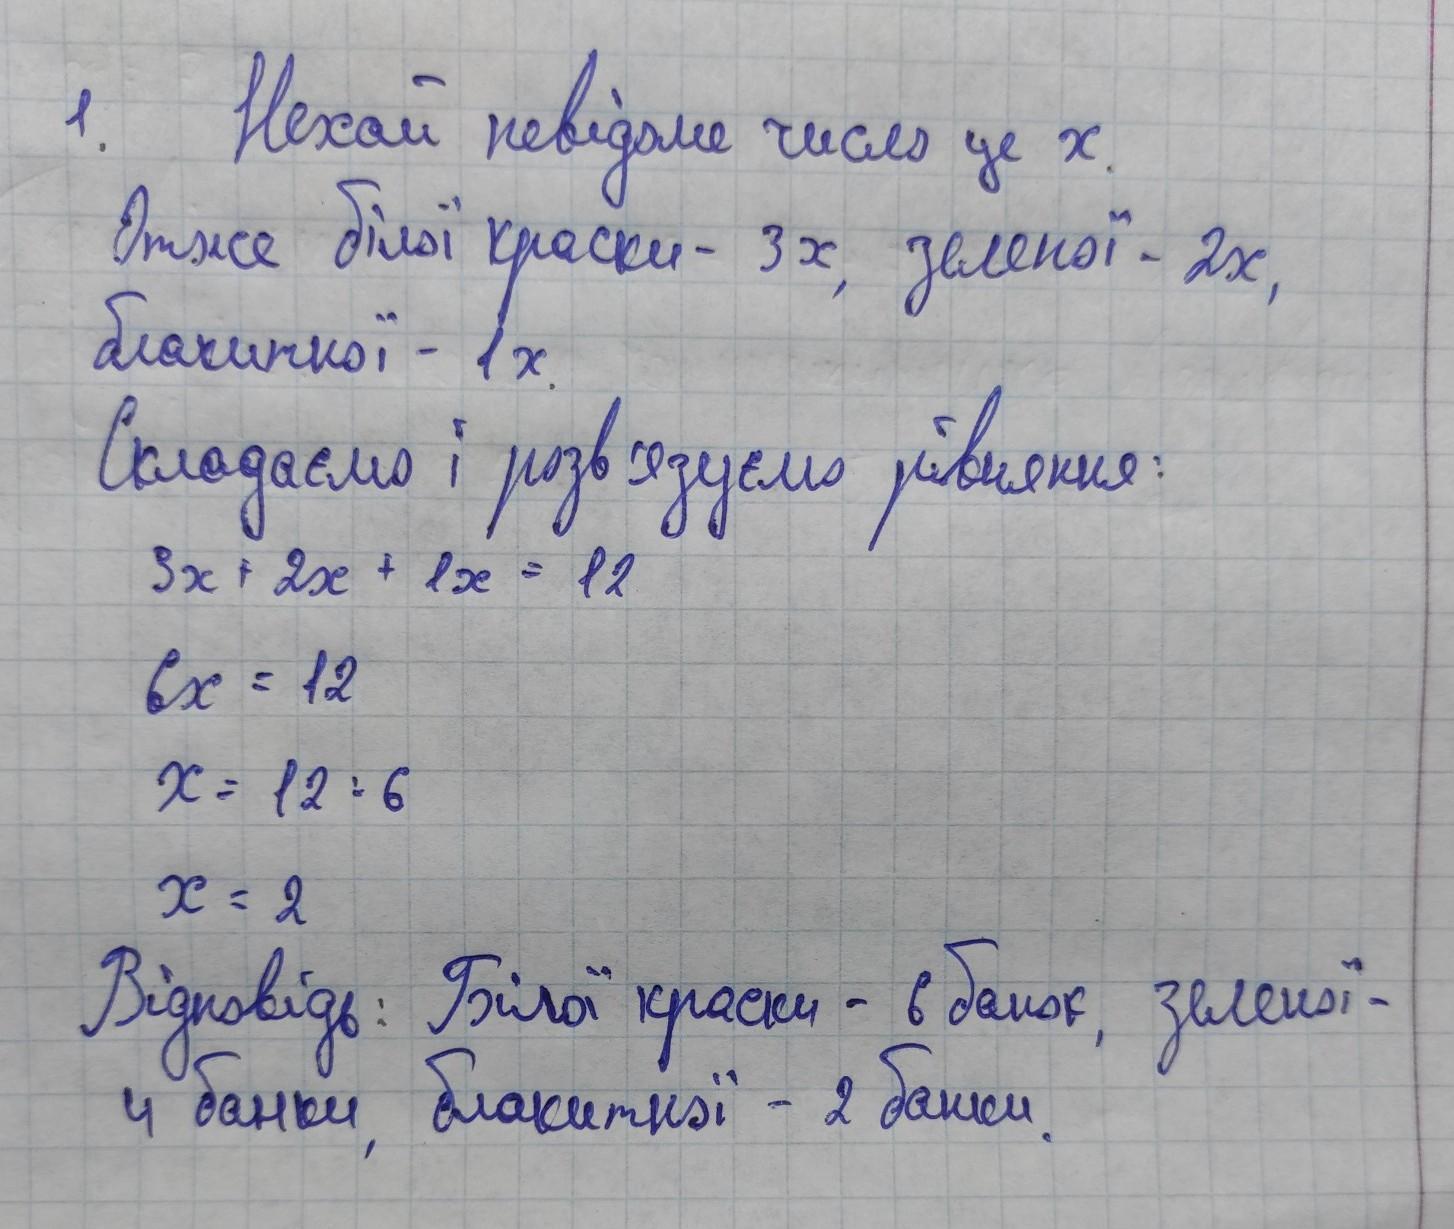 1. Нехай невідоме число це x.
Отже білої краски - 3x, зеленої - 2x,
блакитної - 1x.
Складаємо і розв'язуємо рівняння:
3x + 2x + 1x = 12
6x = 12
x = 12 : 6
x = 2
Відповідь: Білої краски - 6 банок, зеленої -
4 банки, блакитної - 2 банки.